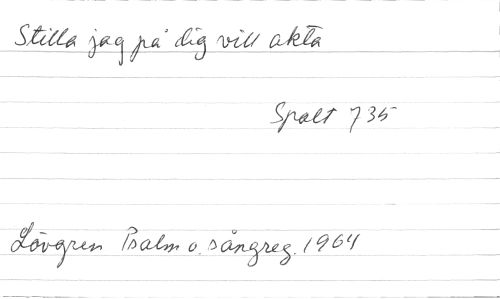 Stilla jag på dig vill akta
Spalt 735
Lövgren Psalm o. sångreg. 1964